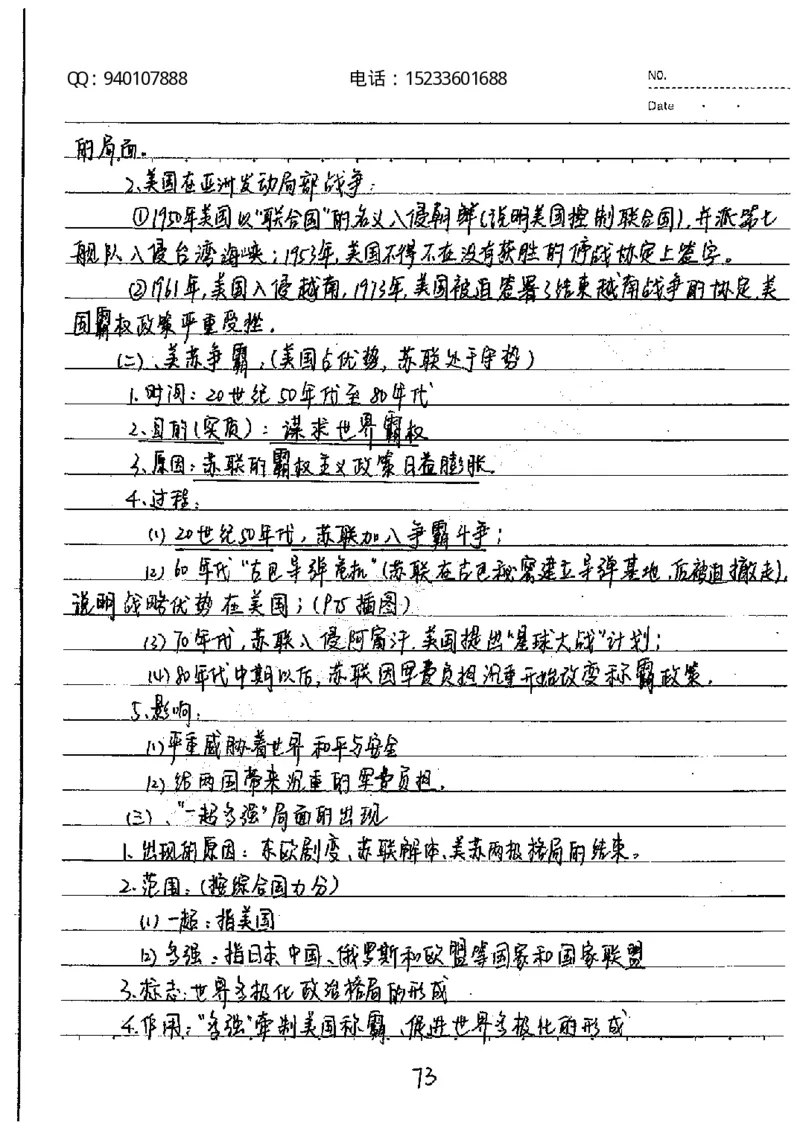 QQ：940107888 电话：15233601688 NO.
Date
的局面。
2、美国在亚洲发动局部战争：
①1950年美国以"联合国"的名义入侵朝鲜(说明美国控制联合国)，并派第七
舰队入侵台湾海峡；1953年，美国不得不在没有获胜的停战协定上签字。
②1961年，美国入侵越南，1973年，美国被迫签署了结束越南战争的协定，美
国霸权政策严重受挫。
(二)、美苏争霸：(美国占优势，苏联处于守势)
1、时间：20世纪50年代至80年代
2、目的(实质)：谋求世界霸权
3、原因：苏联的霸权主义政策日益膨胀。
4、过程：
(1)20世纪50年代，苏联加入争霸斗争；
(2)60年代"古巴导弹危机"(苏联在古巴秘密建立导弹基地，后被迫撤走)，
说明战略优势在美国；(P75插图)
(3)70年代，苏联入侵阿富汗，美国提出"星球大战"计划；
(4)80年代中期以后，苏联因军费负担沉重开始改变称霸政策。
5、影响：
(1)严重威胁着世界和平与安全
(2)给两国带来沉重的军费负担。
(三)、"一超多强"局面的出现
1、出现的原因：东欧剧变、苏联解体、美苏两极格局的结束。
2、范围：(按综合国力分)
(1)一超：指美国
(2)多强：指日本、中国、俄罗斯和欧盟等国家和国家联盟
3、标志：世界多极化政治格局的形成
4、作用："多强"牵制美国称霸、促进世界多极化的形成
73